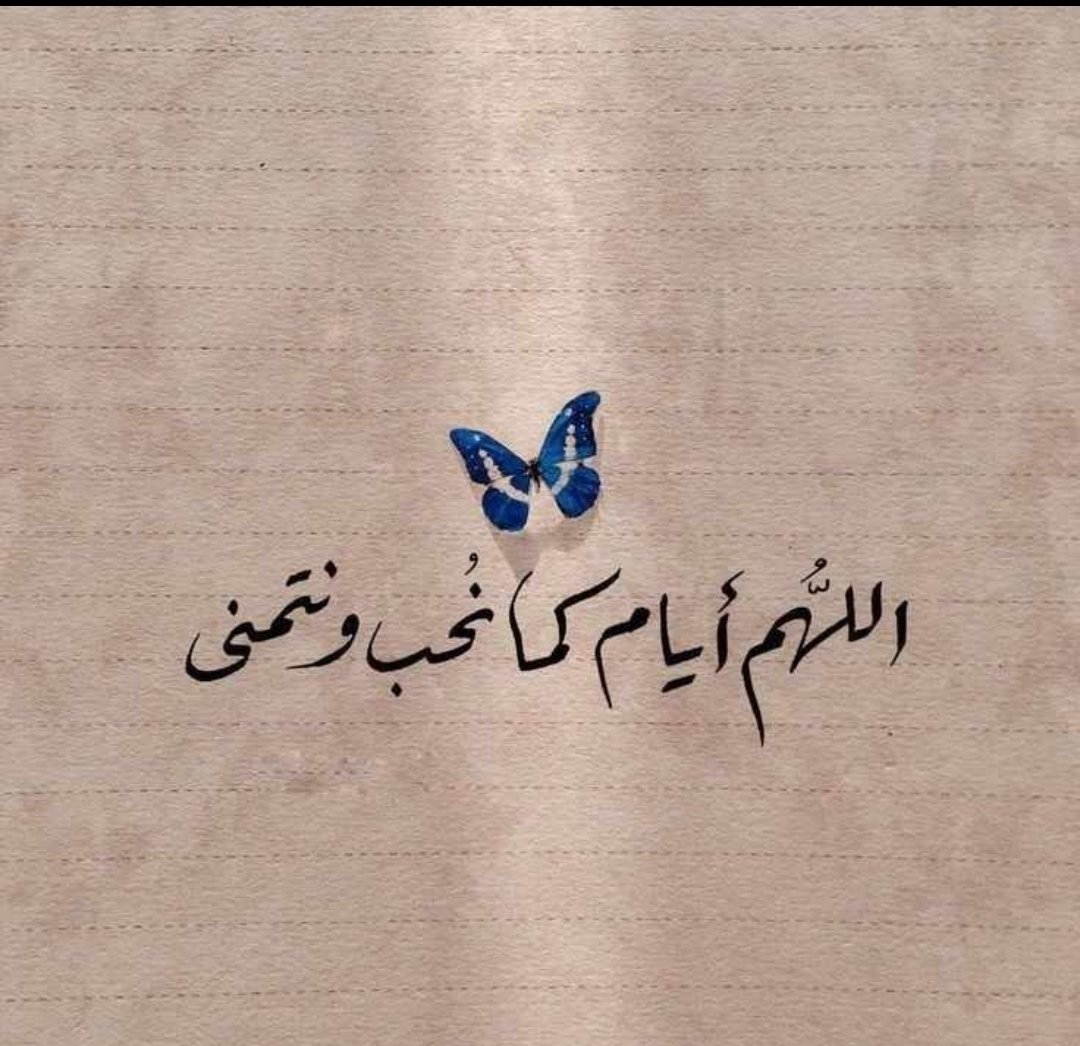 اللَّهُم أيام كما نُحب ونتمنى